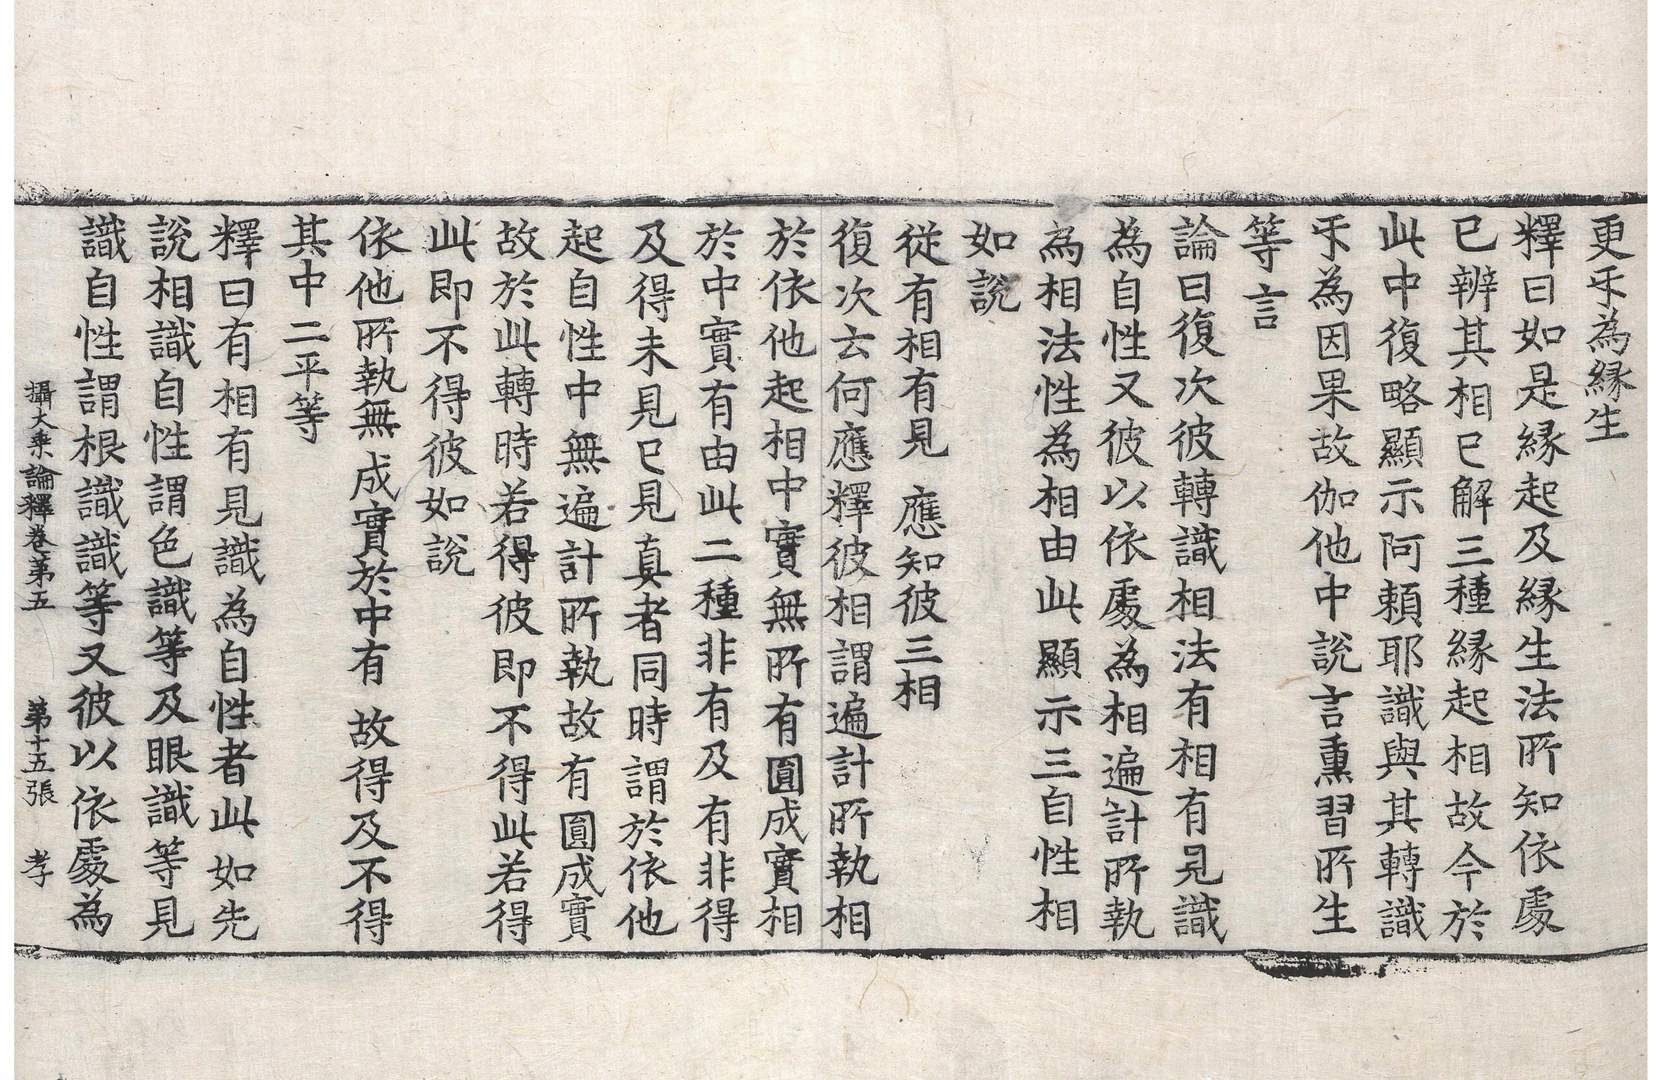 更㸦為縁生
釋曰如是縁起及縁生法所知依處
已辨其相已解三種縁起相故今於
此中復略顯示阿賴耶識與其轉識
㸦為因果故伽他中說言熏習所生
等言
論曰復次彼轉識相法有相有見識
為自性又彼以依處為相遍計所執
為相法性為相由此顯示三自性相
如說
從有相有見 應知彼三相
復次云何應釋彼相謂遍計所執相
於依他起相中實無所有圓成實相
於中實有由此二種非有及有非得
及得未見已見真者同時謂於依他
起自性中無遍計所執故有圓成實
故於此轉時若得彼即不得此若得
此即不得彼如說
依他所執無 成實於中有 故得及不得
其中二平等
釋曰有相有見識為自性者此如先
說相識自性謂色識等及眼識等見
識自性謂根識識等又彼以依處為
攝大乘論釋卷第五 第十五張 孝